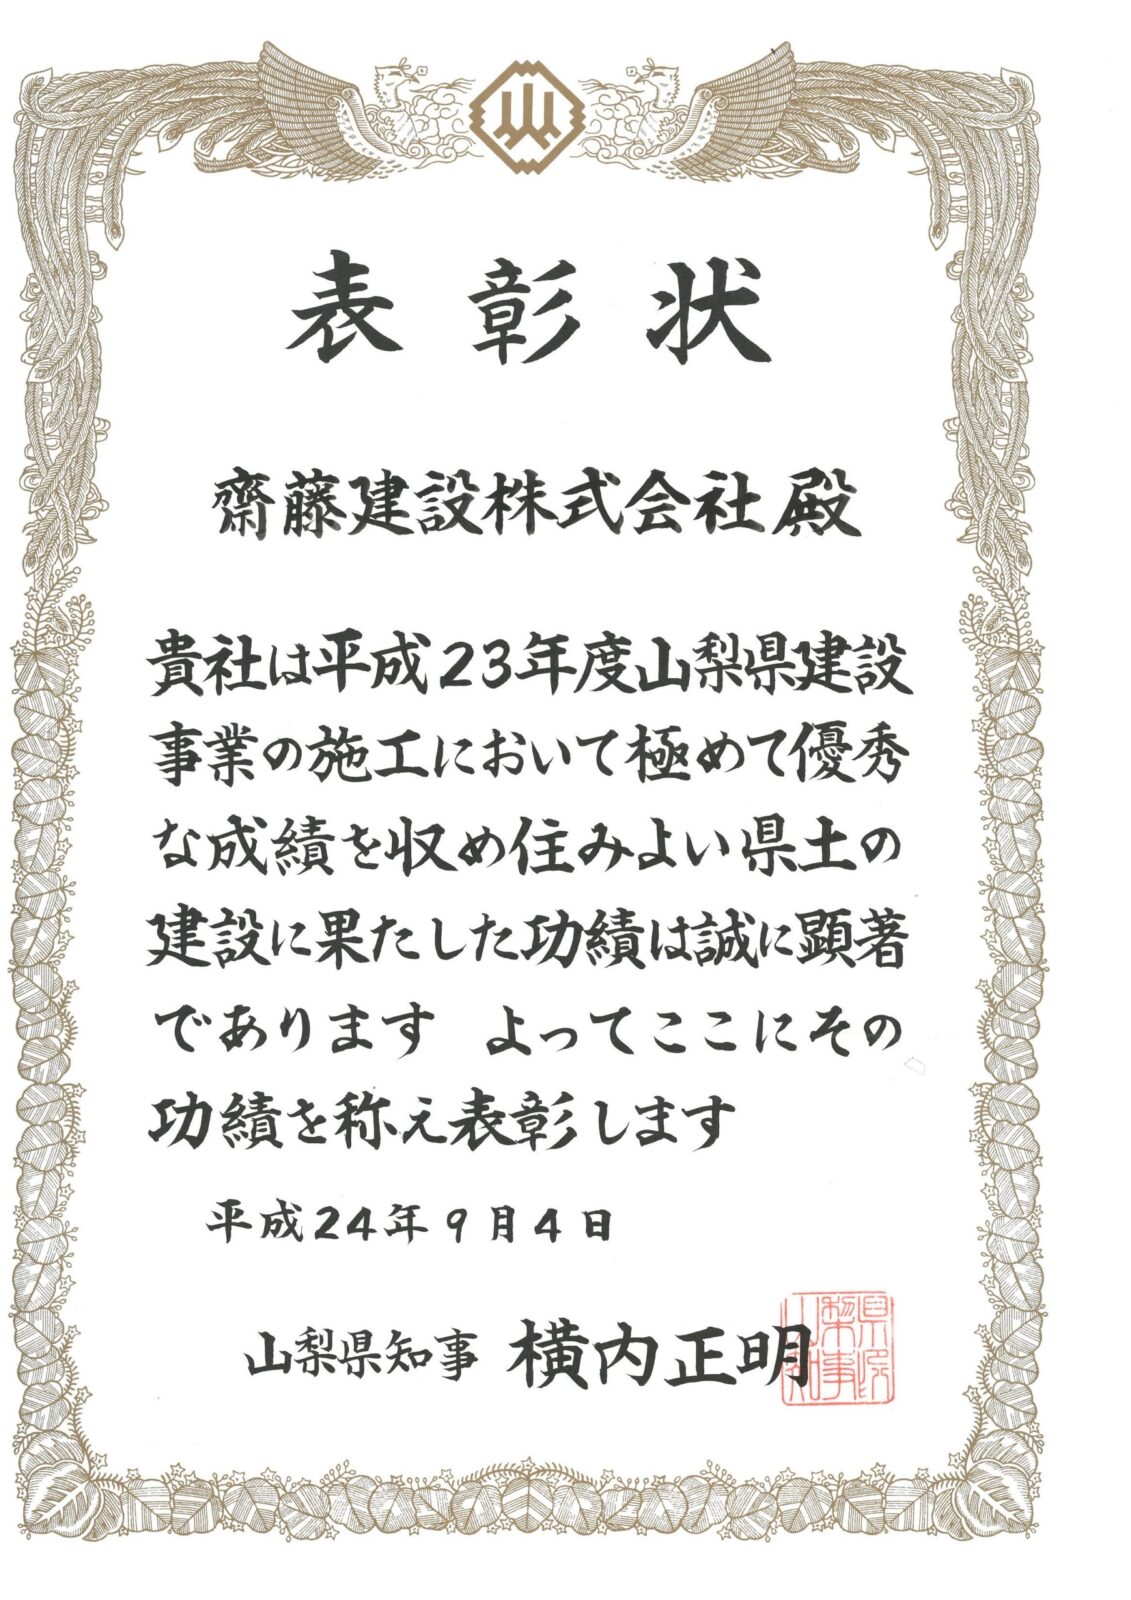 表彰状
齋藤建設株式会社殿
貴社は平成23年度山梨県建設
事業の施工において極めて優秀
な成績を収め住みよい県土の
建設に果たした功績は誠に顕著
であります よってここにその
功績を称え表彰します
平成24年9月4日
山梨県知事 横内正明